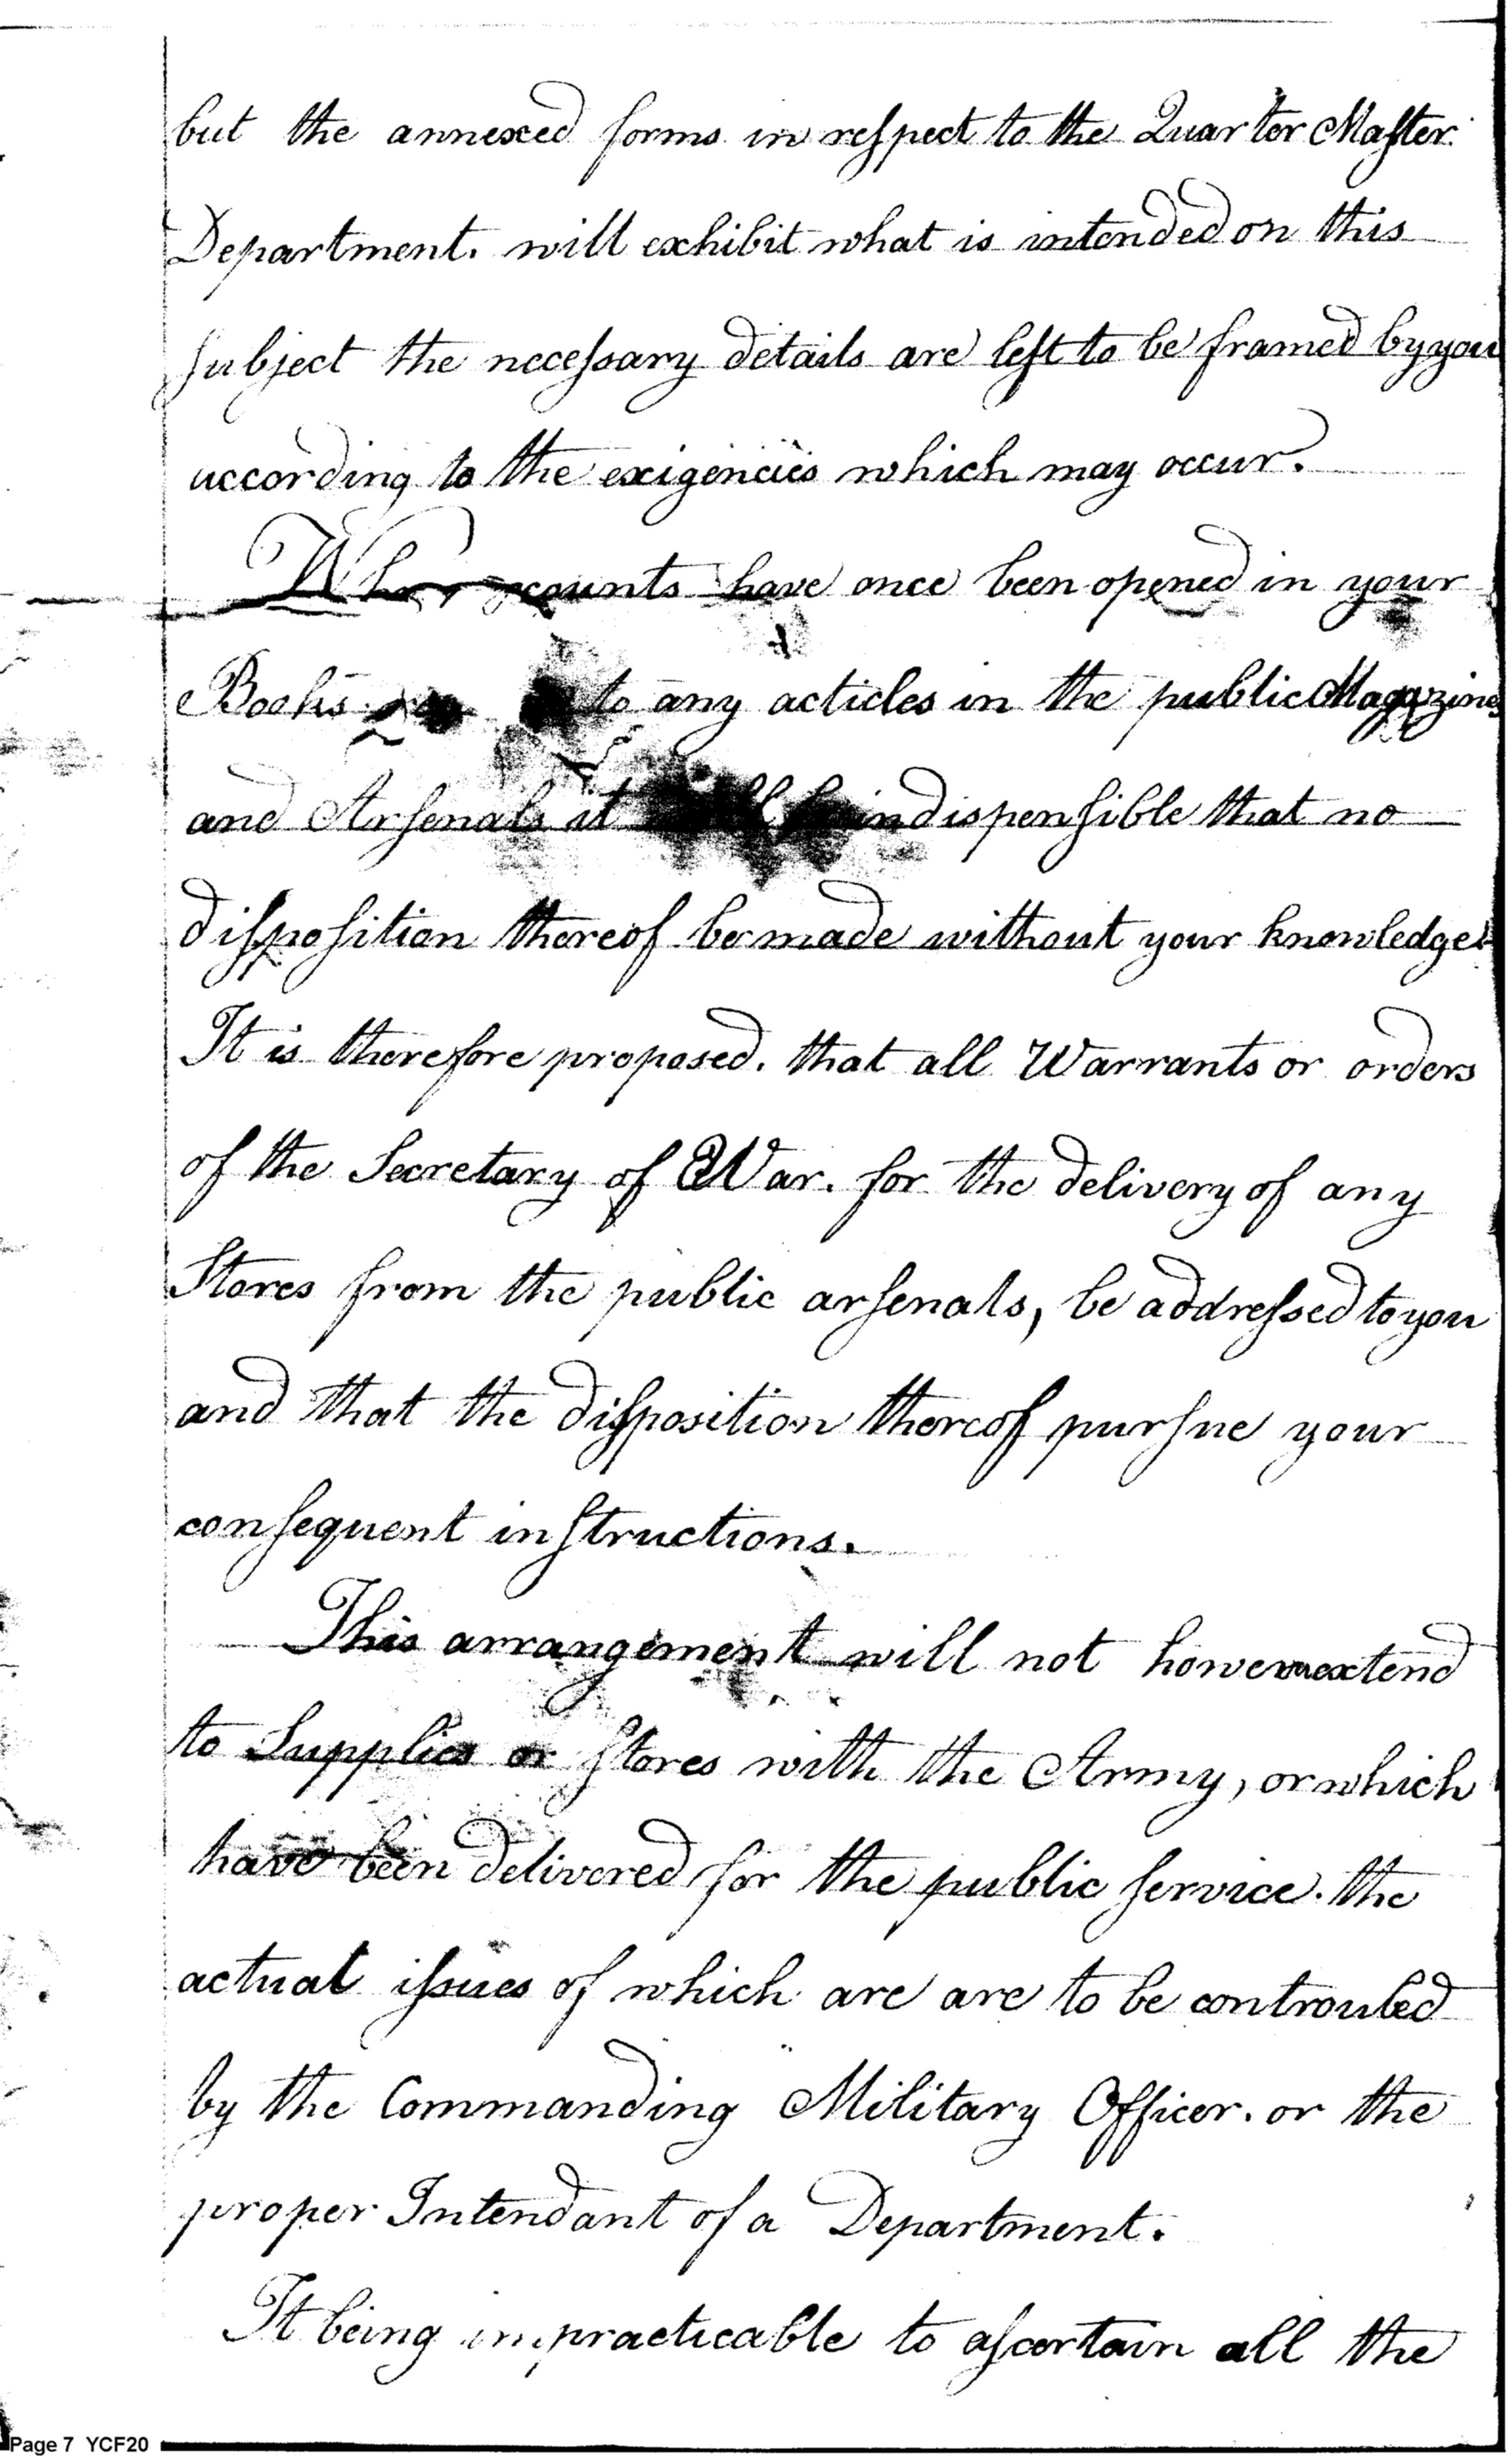 but the annexed forms in respect to the Quarter Master
Department. will exhibit what is intended on this
subject the necessary details are left to be framed by you
according to the exigencies which may occur.
When accounts have once been opened in your
Books to any acticles in the public Magazines
and Arsenals it indispensible that no
disposition thereof be made without your knowledge.
It is therefore proposed. that all Warrants or orders
of the Secretary of War. for the delivery of any
Stores from the public arsenals, be addressed to you
and that the disposition thereof pursue your
consequent instructions.
This arrangement will not however extend
to Supplies or stores with the Army, or which
have been delivered for the public service. the
actual issues of which are are to be controuled
by the Commanding Military Officer. or the
proper Intendant of a Department.
It being impracticable to ascertain all the
Page 7 YCF20